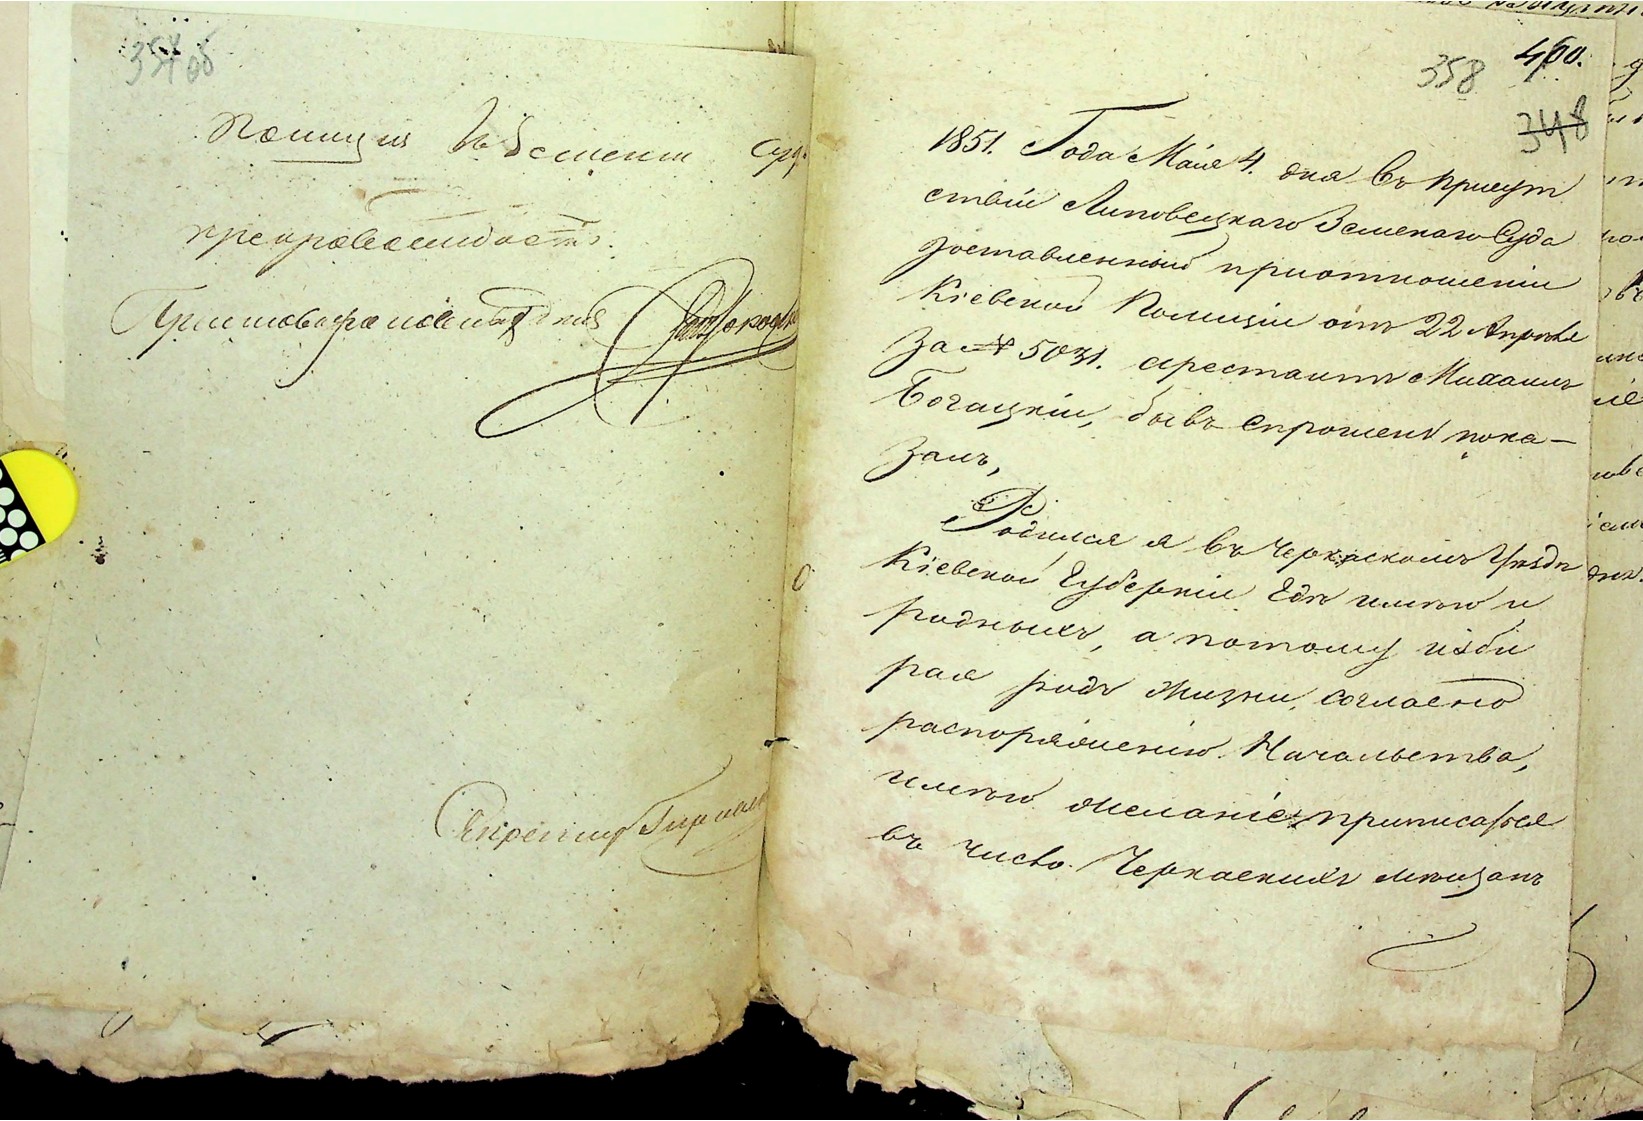 357 об
Полиция въ Земский Суд
препровождаетъ.
358
460.
348
1851. Года Мая 4. дня Въ присут
ствіи Липовецкаго Земскаго Суда
доставленный приотношеніи
Кіевской Полиціи отъ 22 Апрѣля
За № 5031. арестантъ Михаилъ
Богацкій, бывъ спрошенъ пока-
залъ,
Родился я въ Черкаскомъ Уѣздѣ
Кіевской Губерніи Гдѣ имѣю и
родныхъ, а потому избі
рая родъ жизни, согласно
распоряженію Начальства,
имѣю желаніе приписатся
въ число Черкаскихъ мѣщанъ
Секретарь